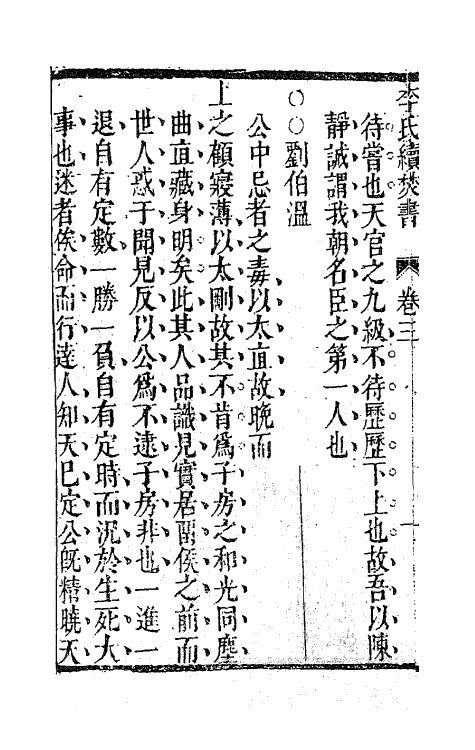 李氏續焚書　卷三
待嘗也天官之九級不待歷歷下上也故吾以陳
靜誠謂我朝名臣之第一人也
○○劉伯溫
公中忌者之毒以太直故晚而
上之顧寖薄以太剛故其不肯爲子房之和光同塵
曲直藏身明矣此其人品識見實居留侯之前而
世人惑于聞見反以公爲不逮子房非也一進一
退自有定數一勝一負自有定時而況於生死大
事也迷者俟命而行達人知天已定公旣精曉天